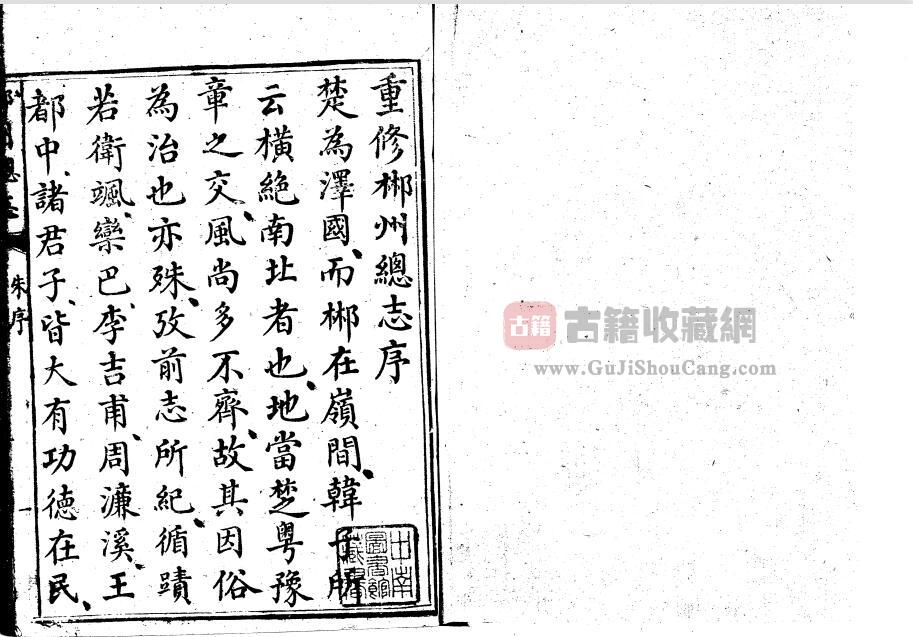 重修郴州總志序
楚為澤國、而郴在嶺間、韓子所
云橫絶南北者也、地當楚粵豫
章之交、風尚多不齊、故其因俗
為治也亦殊、攷前志所紀、循蹟
若衛颯、欒巴、李吉甫、周濂溪、王
都中、諸君子、皆大有功德在民、
朱序
一
古籍
古籍收藏網
www.GuJiShouCang.com